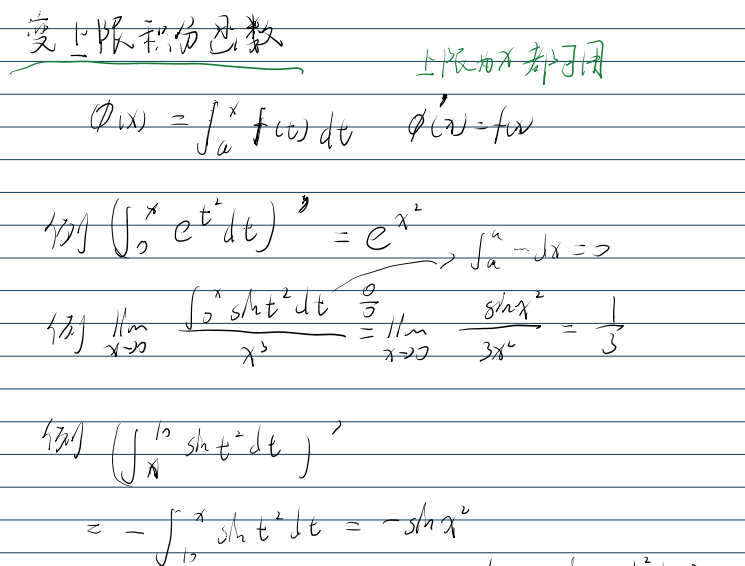 变上限积分函数
上限为x都可用
Φ(x) = ∫ₐˣ f(t) dt  Φ'(x) = f(x)
例 (∫₀ˣ e^{t²} dt)' = e^{x²}
∫ₐᵃ ─ dx = 0
例 lim_{x→0} (∫₀ˣ sin t² dt)/x³ \overset{0/0}{=} lim_{x→0} (sin x²)/(3x²) = 1/3
例 (∫ₓ¹⁰ sin t² dt)'
= - ∫₁₀ˣ sin t² dt = - sin x²